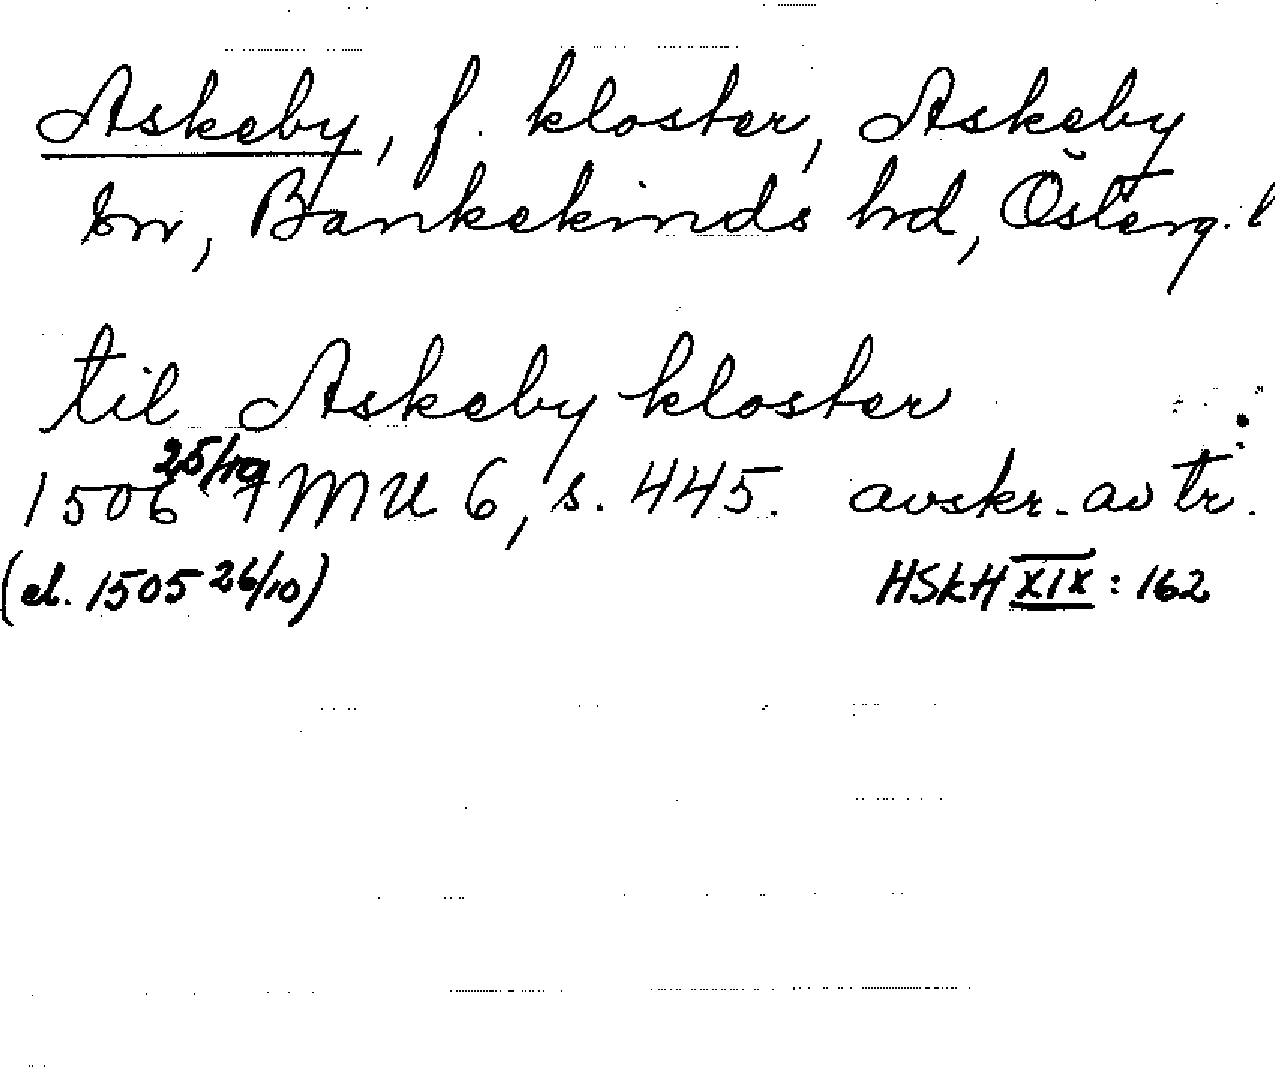 Askeby, f. kloster, Askeby
sn, Bankekinds hd, Österg. l
til Askeby kloster
1506 25/10 FMU 6, s. 445. avskr. av tr.
(el. 1505 26/10) HSkH XIX : 162